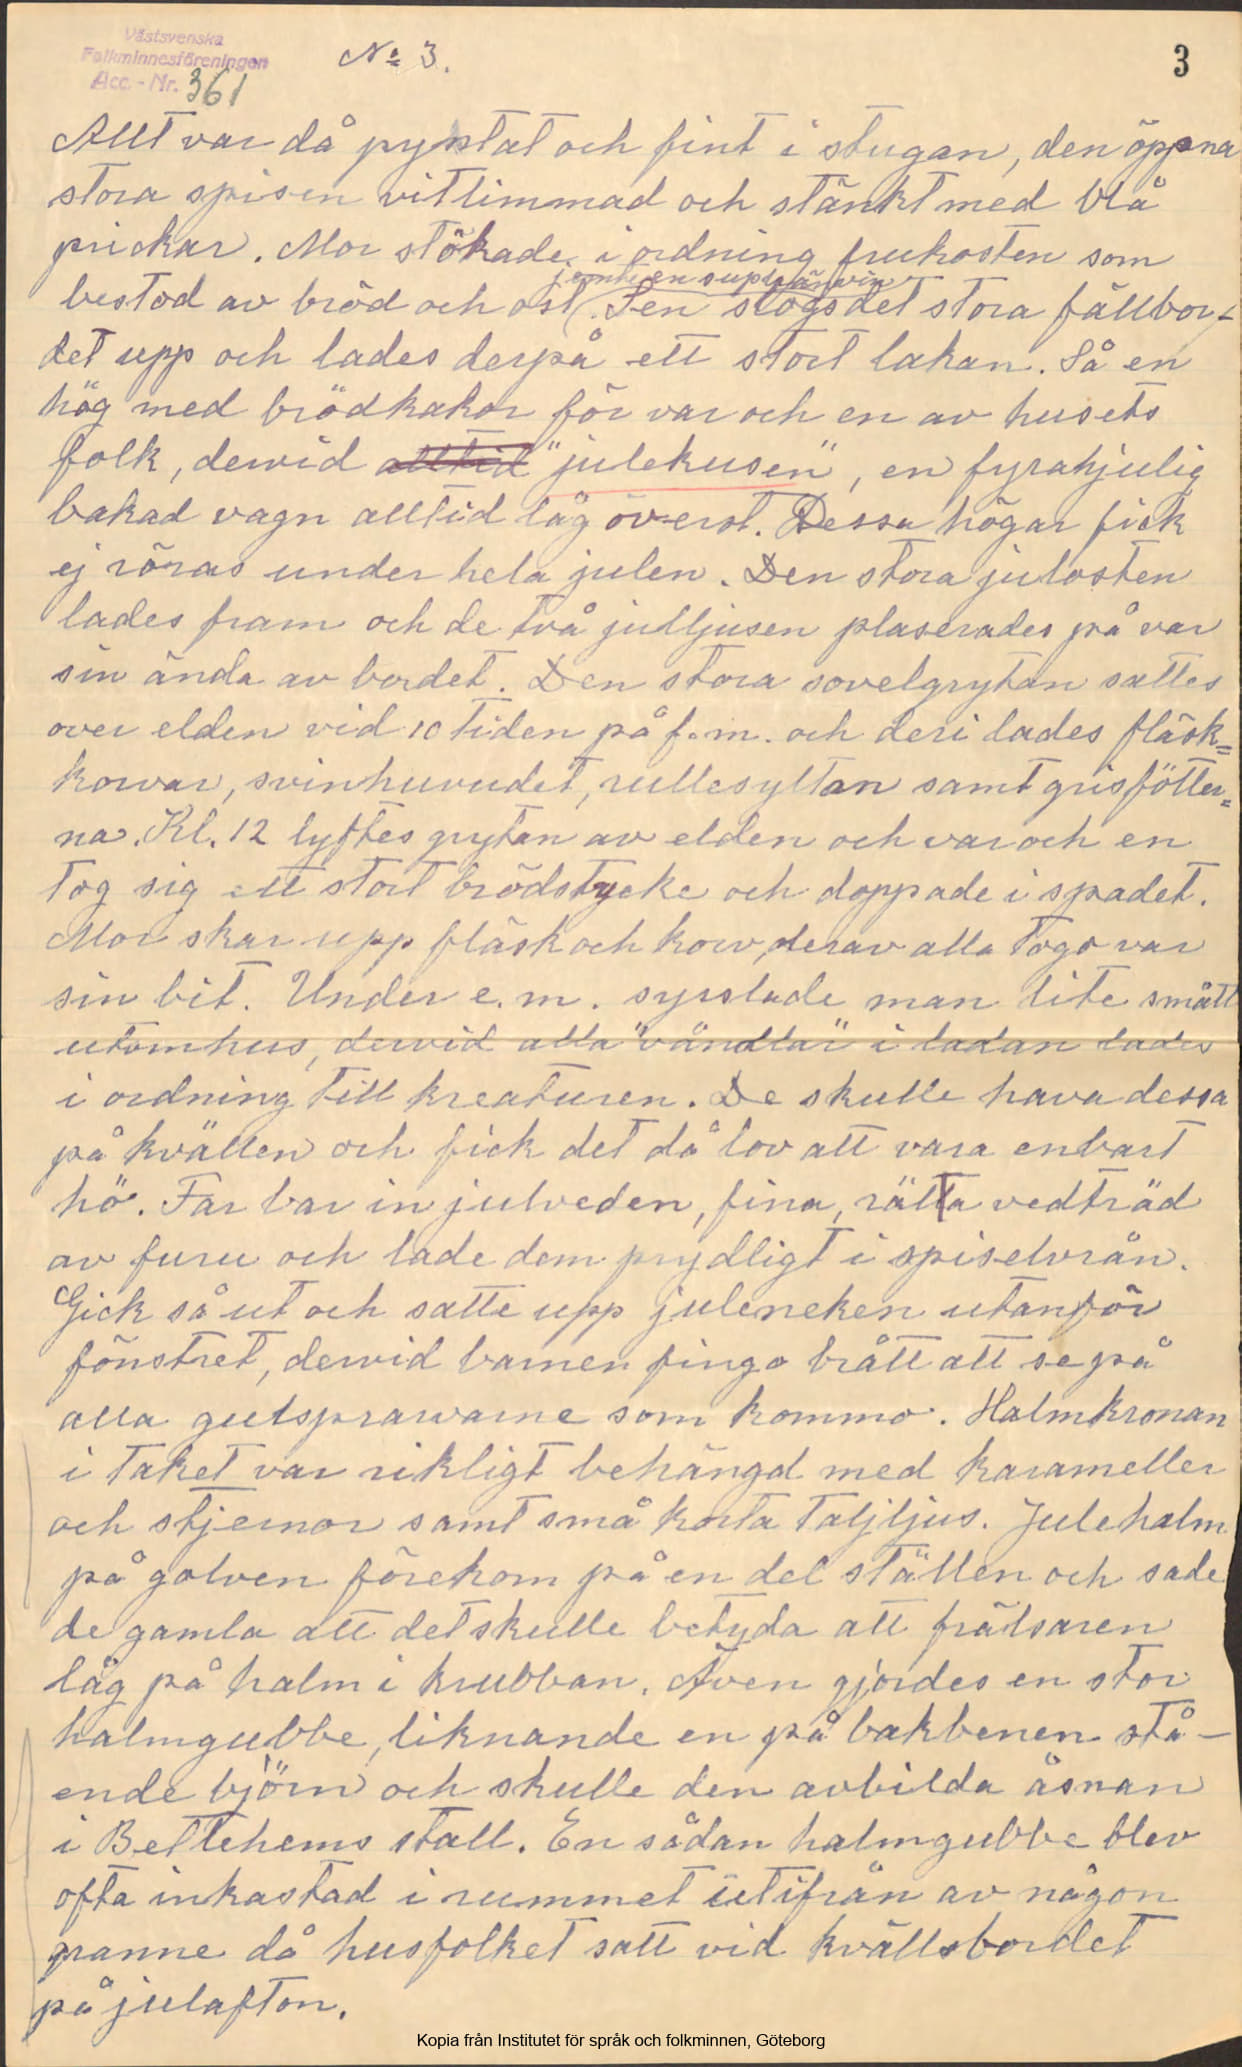 Västsvenska
Folkminnesföreningen
Acc. - Nr. 361
No 3.
3
Allt var då pyntat och fint i stugan, den öppna
stora spisen vitlimmad och stänkt med blå
prickar. Mor stökade i ordning frukosten som
jemte en sup bränvin
bestod av bröd och ost. Sen slogs det stora fällbor-
det upp och lades derpå ett stort lakan. Så en
hög med brödkakor för var och en av husets
folk, dervid alltid "julekusen", en fyrahjulig
bakad vagn alltid låg överst. Dessa högar fick
ej röras under hela julen. Den stora julosten
lades fram och de två julljusen plaserades på var
sin ända av bordet. Den stora sovelgrytan sattes
över elden vid 10 tiden på f.m. och deri lades fläsk=
korvar, svinhuvudet, rullesyltan samt grisfötter=
na. Kl. 12 lyftes grytan av elden och var och en
tog sig ett stort brödstycke och doppade i spadet.
Mor skar upp fläsk och korv, derav alla togo var
sin bit. Under e.m. sysslade man lite smått
utomhus, dervid alla "våndlar" i ladan lades
i ordning till kreaturen. De skulle hava dessa
på kvällen och fick det då lov att vara enbart
hö. Far bar in julveden, fina, rätta vedträd
av furu och lade dem prydligt i spiselvrån.
Gick så ut och satte upp juleneken utanför
fönstret, dervid barnen fingo brått att se på
alla gulsprarvarne som kommo. Halmkronan
i taket var rikligt behängd med karameller
och stjernor samt små korta taljljus. Julehalm
på golven förekom på en del ställen och sade
de gamla att det skulle betyda att frälsaren
låg på halm i krubban. Även gjordes en stor
halmgubbe, liknande en på bakbenen stå-
ende björn och skulle den avbilda åsnan
i Betlehems stall. En sådan halmgubbe blev
ofta inkastad i rummet utifrån av någon
granne då husfolket satt vid kvällsbordet
på julafton.
Kopia från Institutet för språk och folkminnen, Göteborg